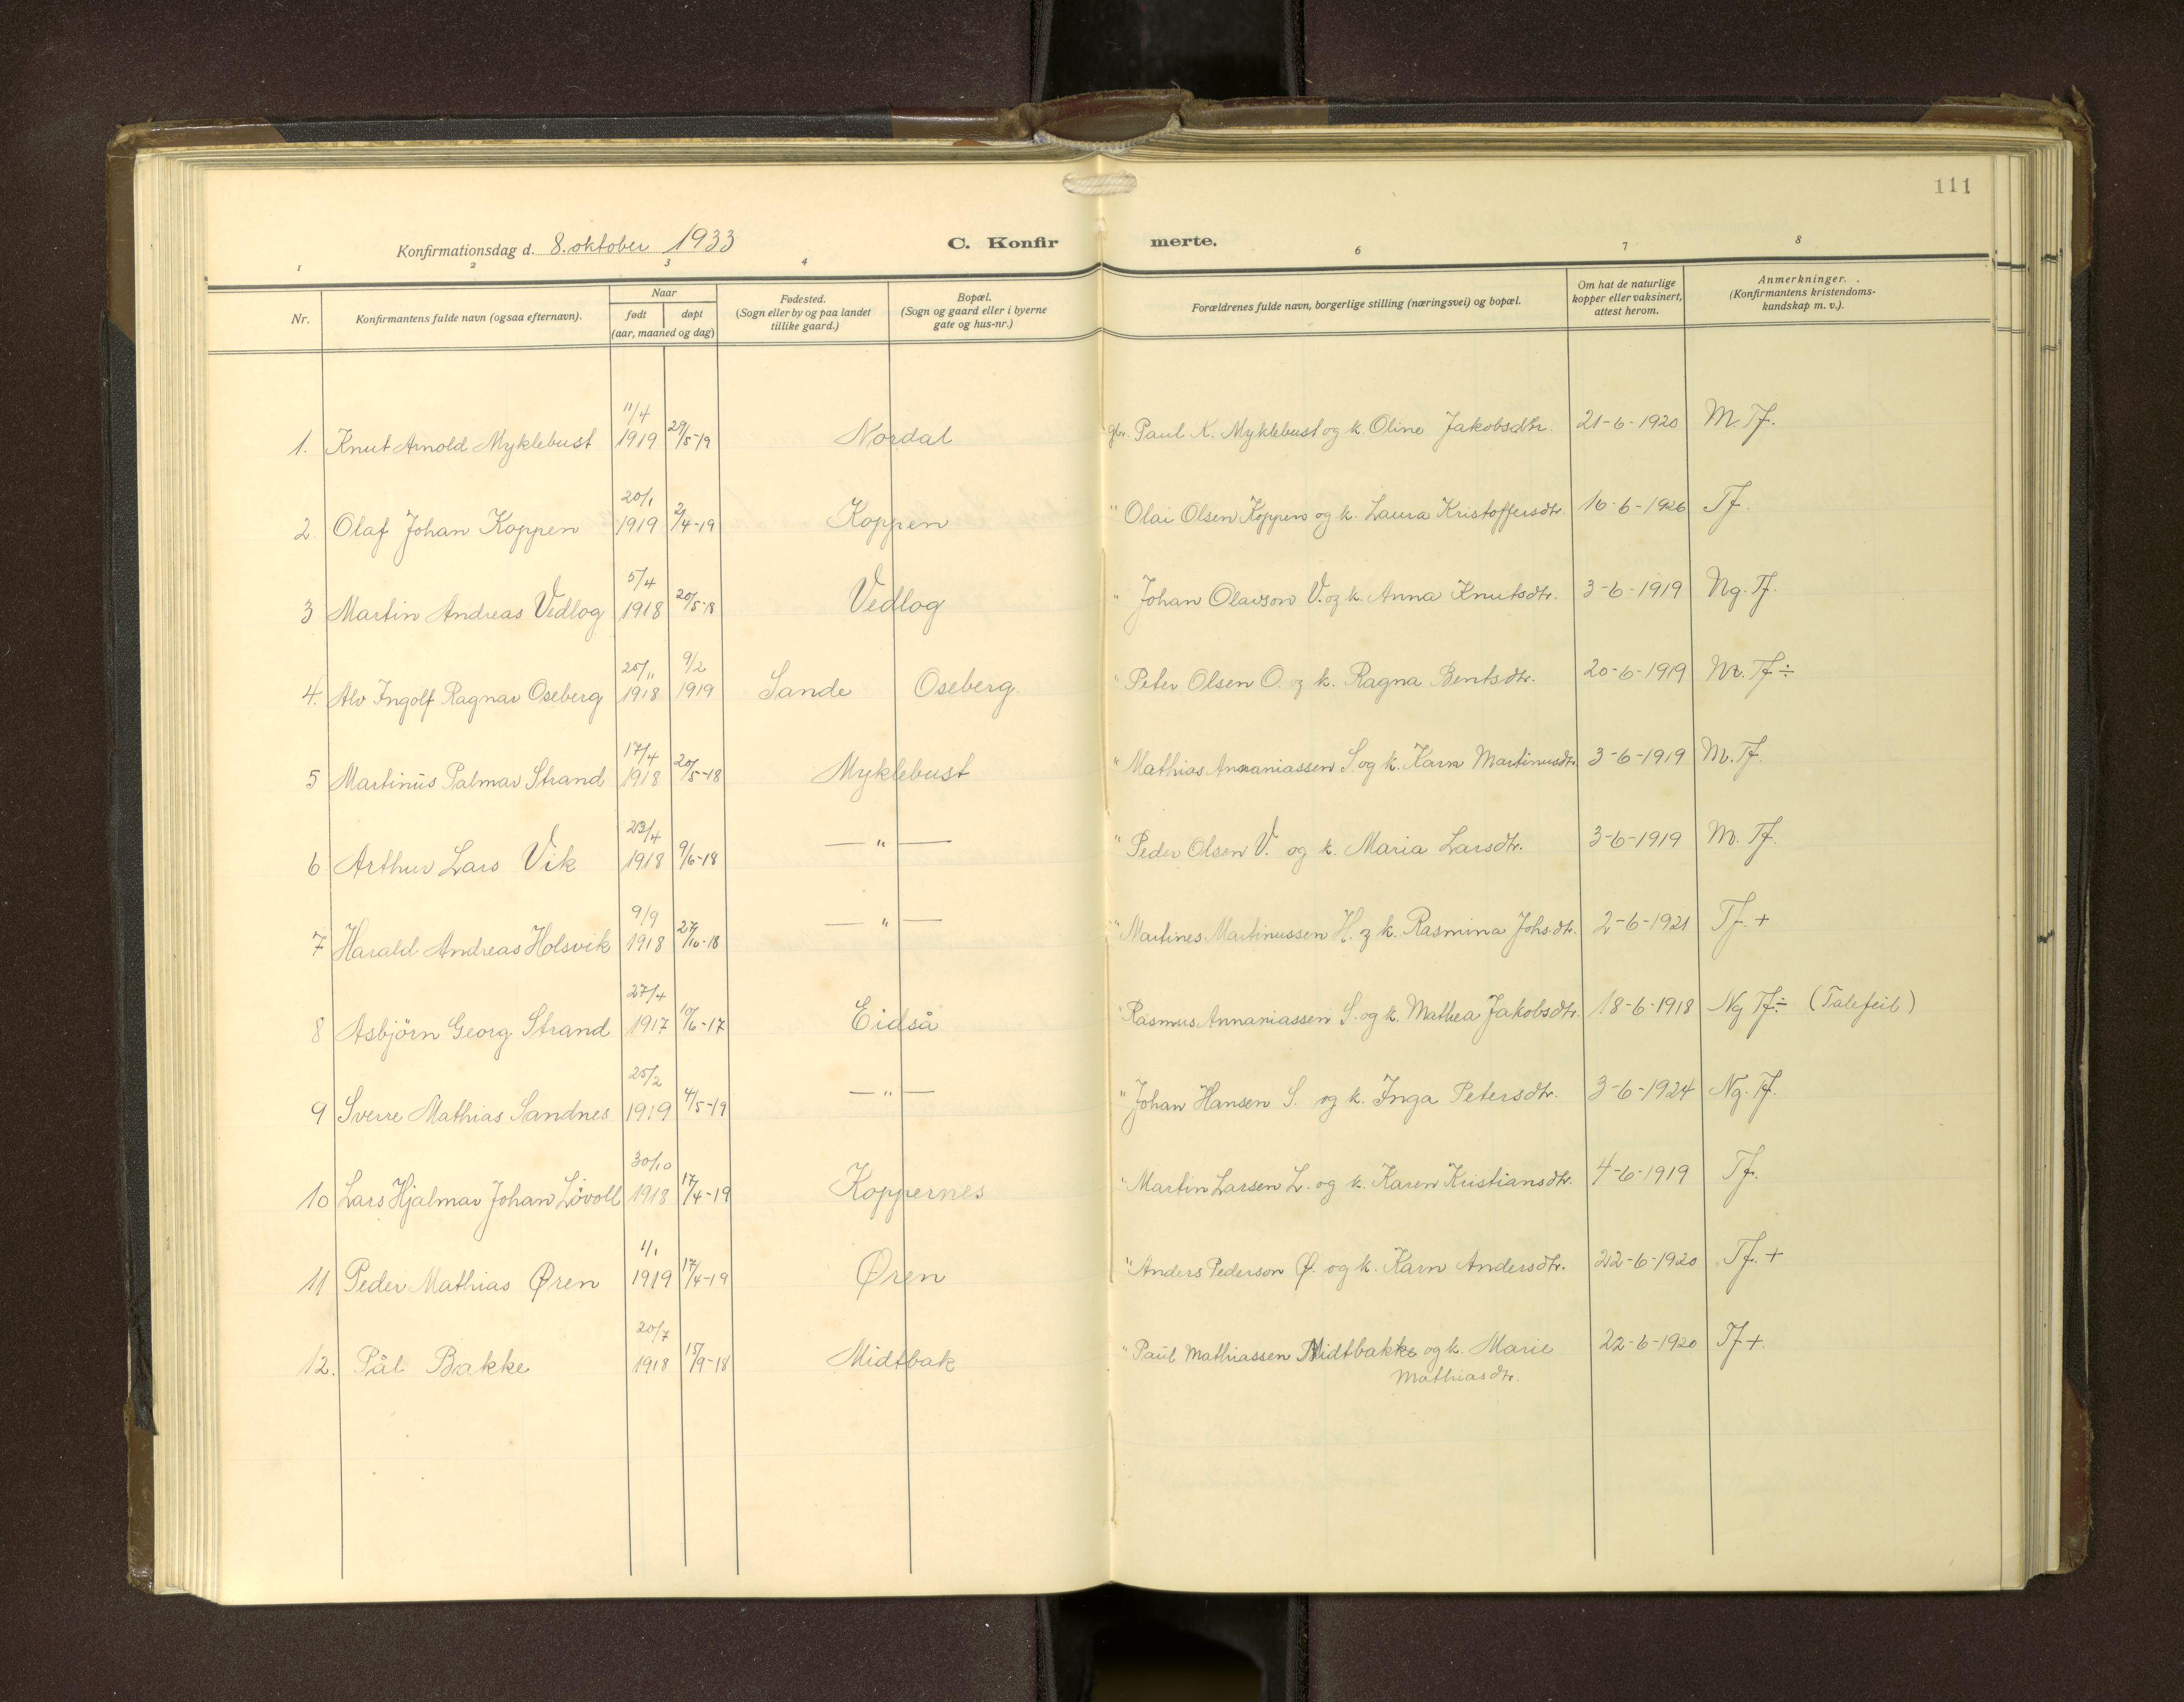 111
Konfirmationsdag d. 8. oktober 1933
C. Konfir merte.
1 2 3 4 6 7 8
Nr.
Konfirmantens fulde navn (ogsaa efternavn).
Naar
født døpt
(aar, maaned og dag)
Fødested.
(Sogn eller by og paa landet
tillike gaard.)
Bopæl.
(Sogn og gaard eller i byerne
gate og hus-nr.)
Forældrenes fulde navn, borgerlige stilling (næringsvei) og bopæl.
Om hat de naturlige
kopper eller vaksinert,
attest herom.
Anmerkninger.
(Konfirmantens kristendoms-
kundskap m. v.).
1. Knut Arnold Myklebust 11/4 1919 29/5-19 Nordal gbr. Paul K. Myklebust og k. Oline Jakobsdtr. 21-6-1920 M Tf.
2. Olaf Johan Koppen 20/1 1919 2/4-19 Koppen " Olai Olsen Koppen og k. Laura Kristoffersdtr. 16-6-1926 Tf.
3 Martin Andreas Vedlog 5/4 1918 20/5-18 Vedlog " Johan Olavson V. og k. Anna Knutsdtr. 3-6-1919 Ng. Tf.
4. Alv Ingolf Ragnar Oseberg 25/11 1918 9/2 1919 Sande Oseberg. " Peter Olsen O. og k. Ragna Bentsdtr. 20-6-1919 M. Tf ÷
5 Martinus Palmar Strand 17/4 1918 20/5-18 Myklebust " Mathias Annaniassen S. og k. Karn Martinusdtr. 3-6-1919 M. Tf.
6 Arthur Lars Vik 23/4 1918 9/6-18 — " — " Peder Olsen V. og k. Maria Larsdtr. 3-6-1919 M. Tf.
7 Harald Andreas Holsvik 9/9 1918 27/10-18 — " — " Martines Martinussen H. og k. Rasmina Johsdtr. 2-6-1921 Tf. +
8 Asbjörn Georg Strand 27/4 1917 10/6-17 Eidså " Rasmus Annaniassen S. og k. Mathea Jakobsdtr. 18-6-1918 Ng Tf ÷ (Talefeil)
9 Sverre Mathias Sandnes 25/2 1919 4/5-19 — " — " Johan Hansen S. og k. Inga Petersdtr. 3-6-1924 Ng. Tf.
10 Lars Hjalmar Johan Lövoll 30/10 1918 17/4-19 Koppernes " Martin Larsen L. og k. Karen Kristiansdtr. 4-6-1919 Tf.
11 Peder Mathias Øren 1/1 1919 17/4-19 Øren " Anders Pederson Ø. og k. Karn Andersdtr. 22-6-1920 Tf. +
12. Pål Bakke 20/7 1918 15/9-18 Midtbak " Paul Mathiassen Midtbakke og k. Marie 22-6-1920 Tf +.
Mathiasdtr.